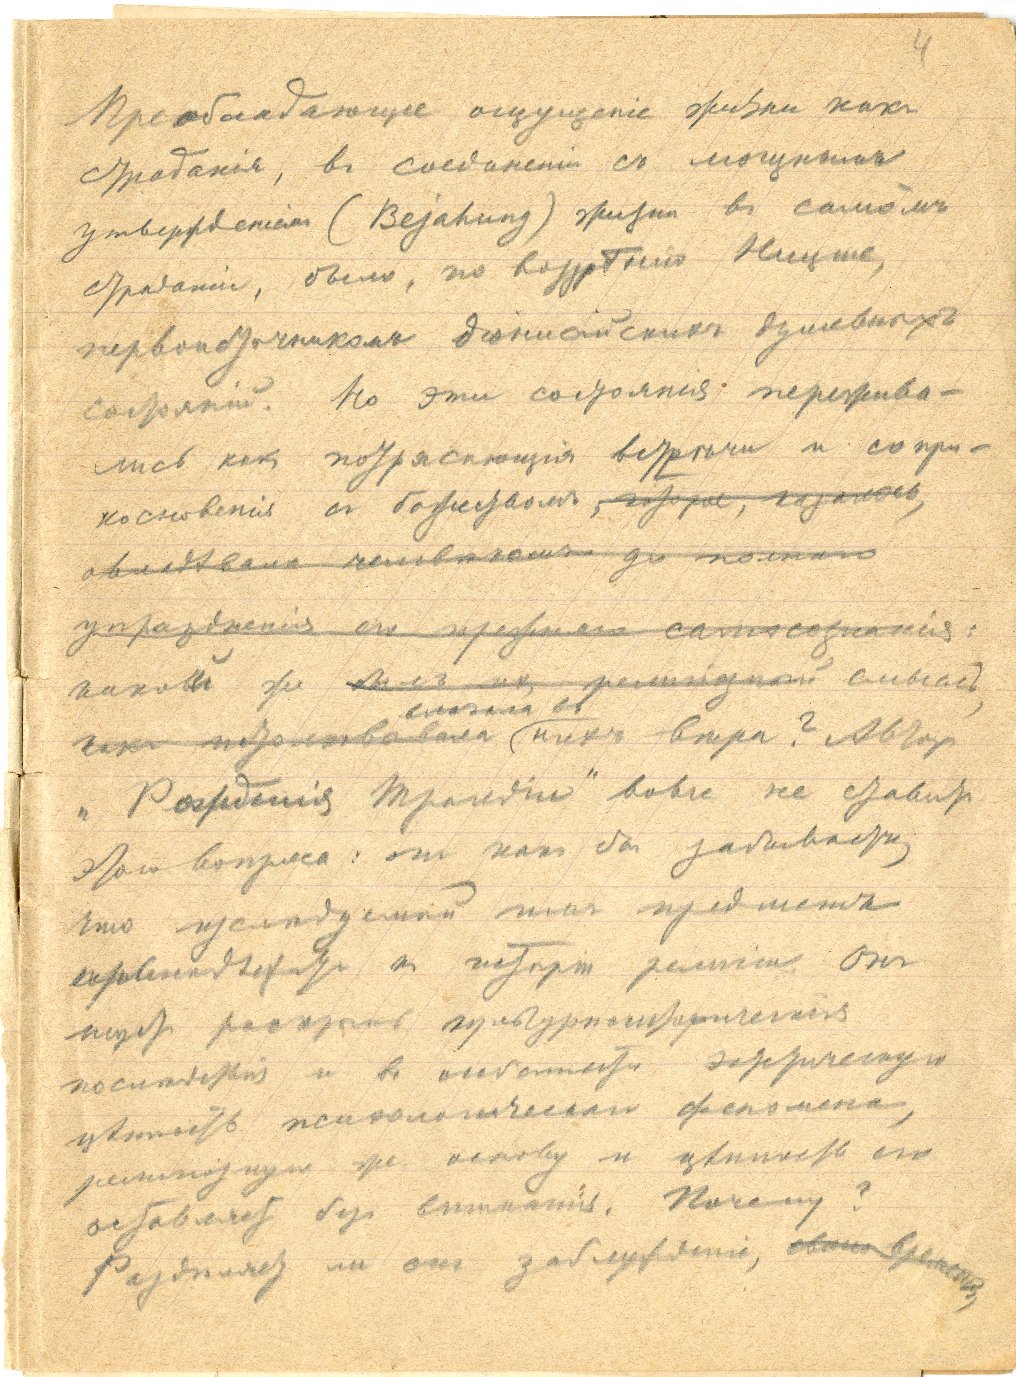 4
Преобладающее ощущеніе жизни какъ
страданія, въ соединеніи съ мощнымъ
утвержденіемъ (Bejahung) жизни въ самомъ
страданіи, было, по воззрѣнію Ницше,
первоисточникомъ діонисійскихъ душевныхъ
состояній. Но эти состоянія пережива-
лись какъ потрясающія встрѣчи и сопри-
косновенія съ божествомъ, которое, казалось,
овладѣвало человѣкомъ до полнаго
упраздненія его прежняго самосознанія:
какой же былъ ихъ религіозный смыслъ,
сложила въ
какъ истолковывала нихъ вѣра? Авторъ
„Рожденія Трагедіи" вовсе не ставитъ
этого вопроса: онъ какъ бы забываетъ,
что изслѣдуемый имъ предметъ
принадлежитъ къ исторіи религіи. Онъ
ищетъ раскрыть культурноисторическія
послѣдствія и въ особенности эстетическую
цѣнность психологическаго феномена,
религіозную же основу и цѣнность его
оставляетъ безъ вниманія. Почему?
Раздѣляетъ ли онъ заблужденіе, времени,